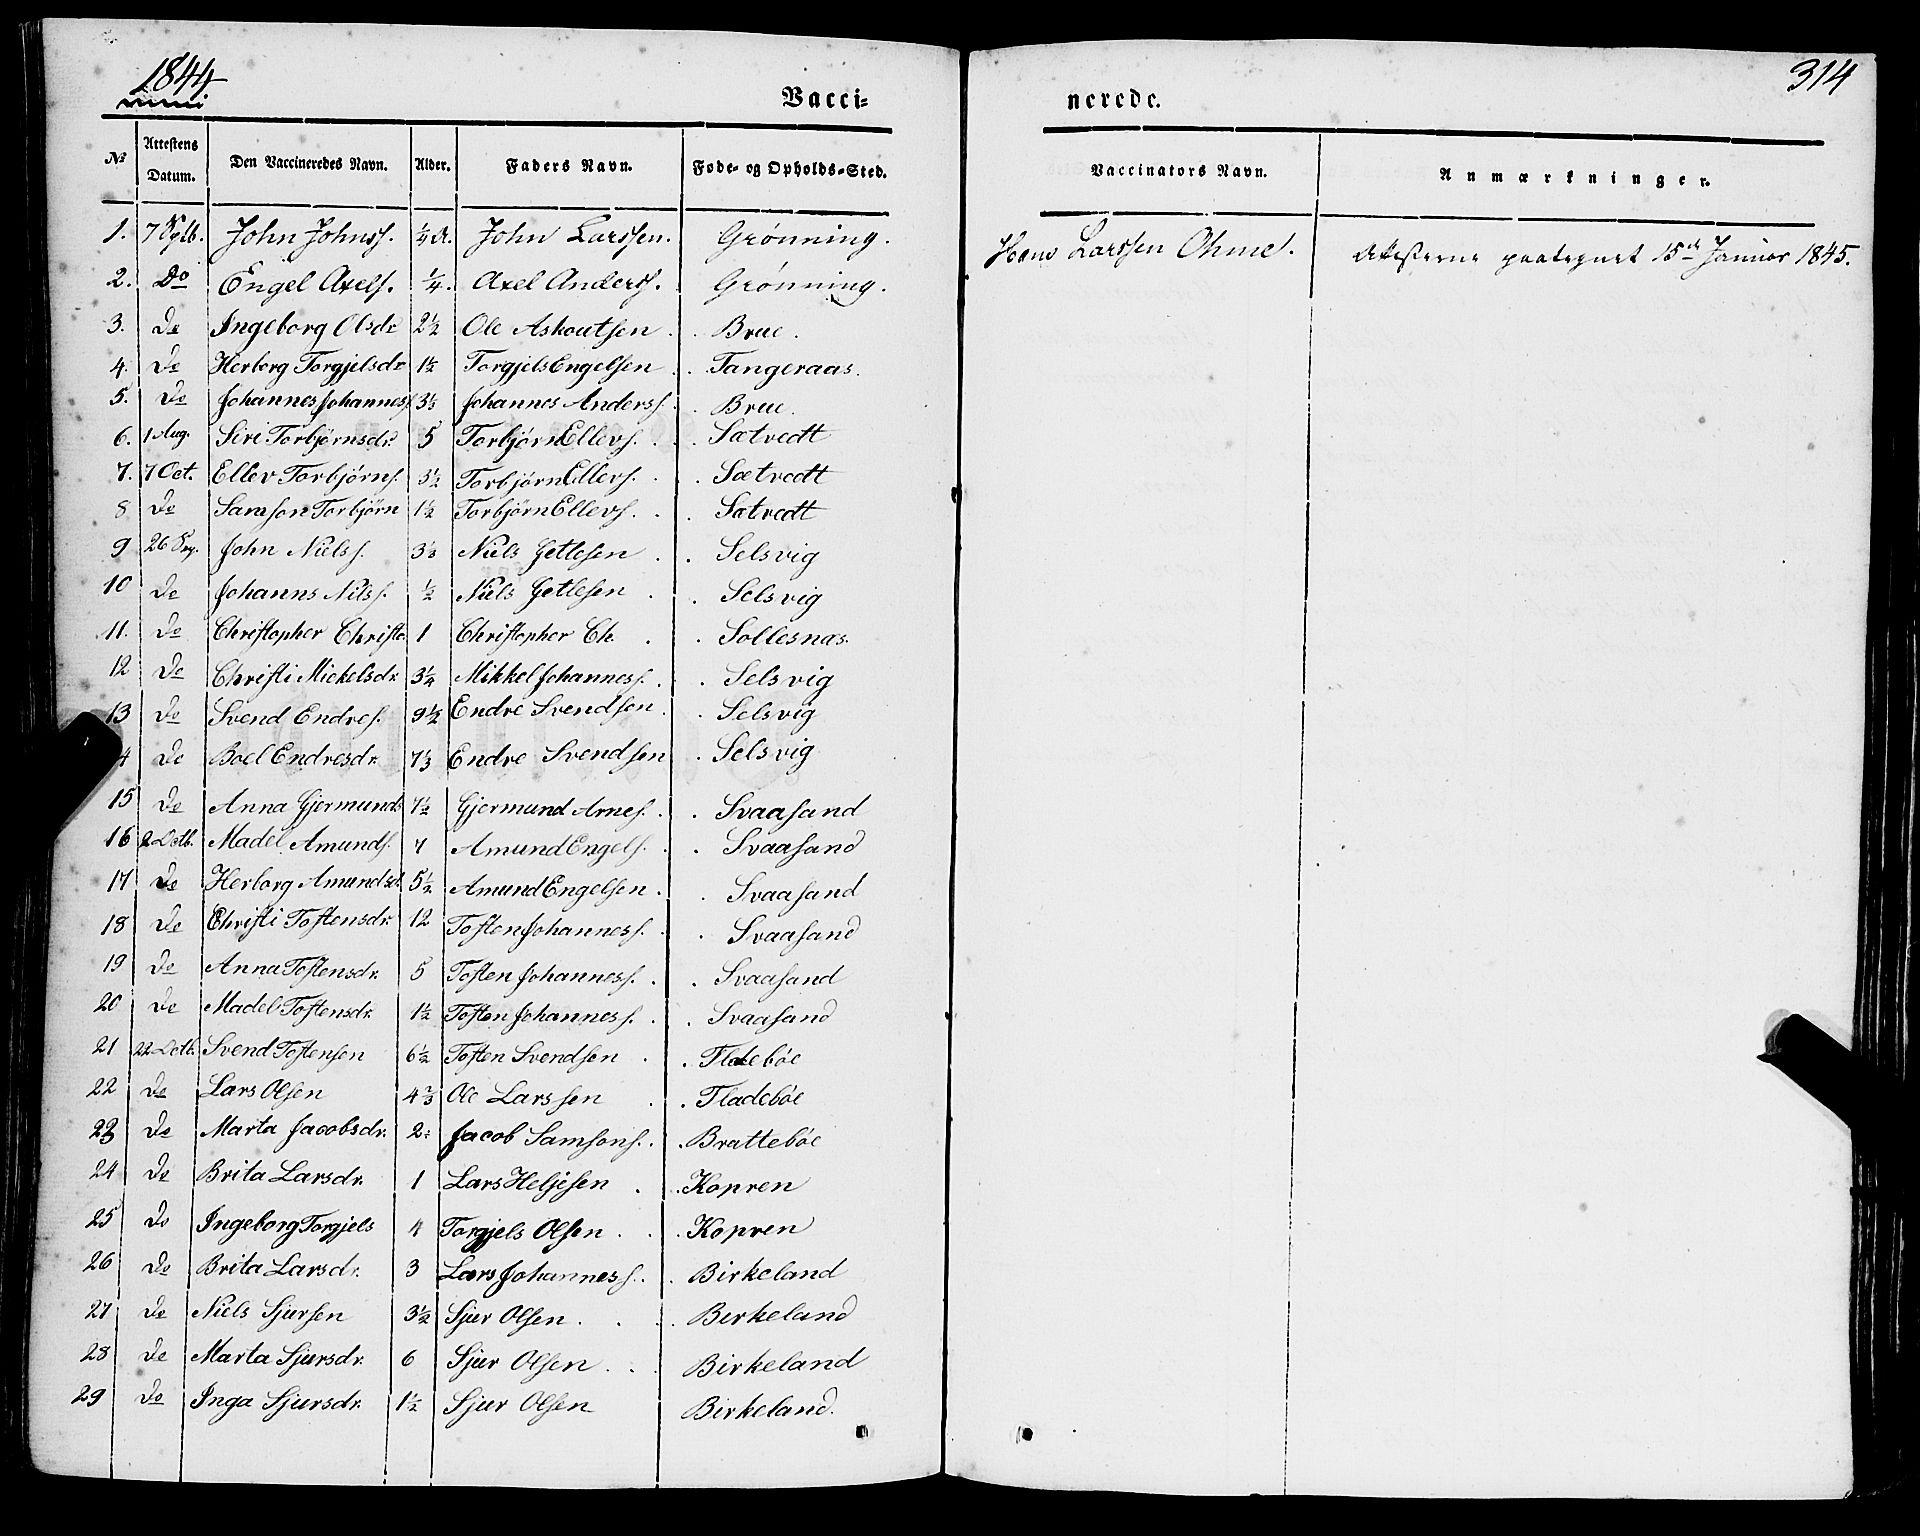 1844
314
Vacci-
nerede.
No Attestens Datum. Den Vaccineredes Navn. Alder. Faders Navn. Føde- og Opholds-Sted. Vaccinators Navn. Anmærkninger.
1. 7 John Johnss. ¼ A. John Larssen. Grønning. Hans Larssen Ohme. Attesterne paategnet 15de Januar 1845.
2. Do Engel Axels. ¼. Axel Anderss. Grønning.
3. Do Ingeborg Olsdr 2½ Ole Askoutsen Brue.
4. Do Herborg Torgjelsdr 1½ Torgjels Engelsen Tangeraas.
5. Do Johannes Johanness. 3½ Johannes Anderss. Brue.
6. 1 Aug. Siri Torbjørnsdr. 5 Torbjørn Ellevs. Sætvedt
7. 7 Oct. Ellev Torbjørns. 3½ Torbjørn Ellevs. Sætvedt
8 Do Samson Torbjørn 1½ Torbjørn Ellevs. Sætvedt
9 26 John Nielss. 3½ Niels Jetlesen Selsvig
10 Do Johanns Nilss. ½ Niels Jetlesen Selsvig
11. Do Christopher Christo. 1 Christopher Ch. Sollesnæs.
12 Do Christi Mickelsdr. 3¼ Mikkel Johanness. Selsvig
13 Do Svend Endres. 9½ Endre Svendsen Selsvig
4 Do Boel Endresdr. 7⅓ Endre Svendsen Selsvig
15 Do Anna Gjermunds 7½ Gjermund Arnes. Svaasand
16 2 Octb. Madel Amunds. 7 Amund Engels. Svaasand
17 Do Herborg Amundsd. 5½ Amund Engelsen. Svaasand
18 Do Christi Tostensdr. 12 Tosten Johanness. Svaasand
19 Do Anna Tostensdr. 5 Tosten Johanness. Svaasand
20 Do Madel Tostensdr. 1½ Tosten Johanness. Svaasand
21 22 Octb. Svend Tostensen 6½ Tosten Svendsen Fladebøe
22 Do Lars Olsen 4⅔ Ole Larssen Fladebøe
23 Do Marta Jacobsdr. 2 Jacob Samsons. Brattebøe
24 Do Brita Larsdr. 1 Lars Heljesen Kopren
25 Do Ingeborg Torgjels 4 Torgjels Olsen Kopren
26 Do Brita Larsdr. 3 Lars Johanness. Birkeland
27 Do Niels Sjursen 3½ Sjur Olsen Birkeland
28 Do Marta Sjursdr. 6 Sjur Olsen Birkeland
29 Do Inga Sjursdr. 1½ Sjur Olsen Birkeland.